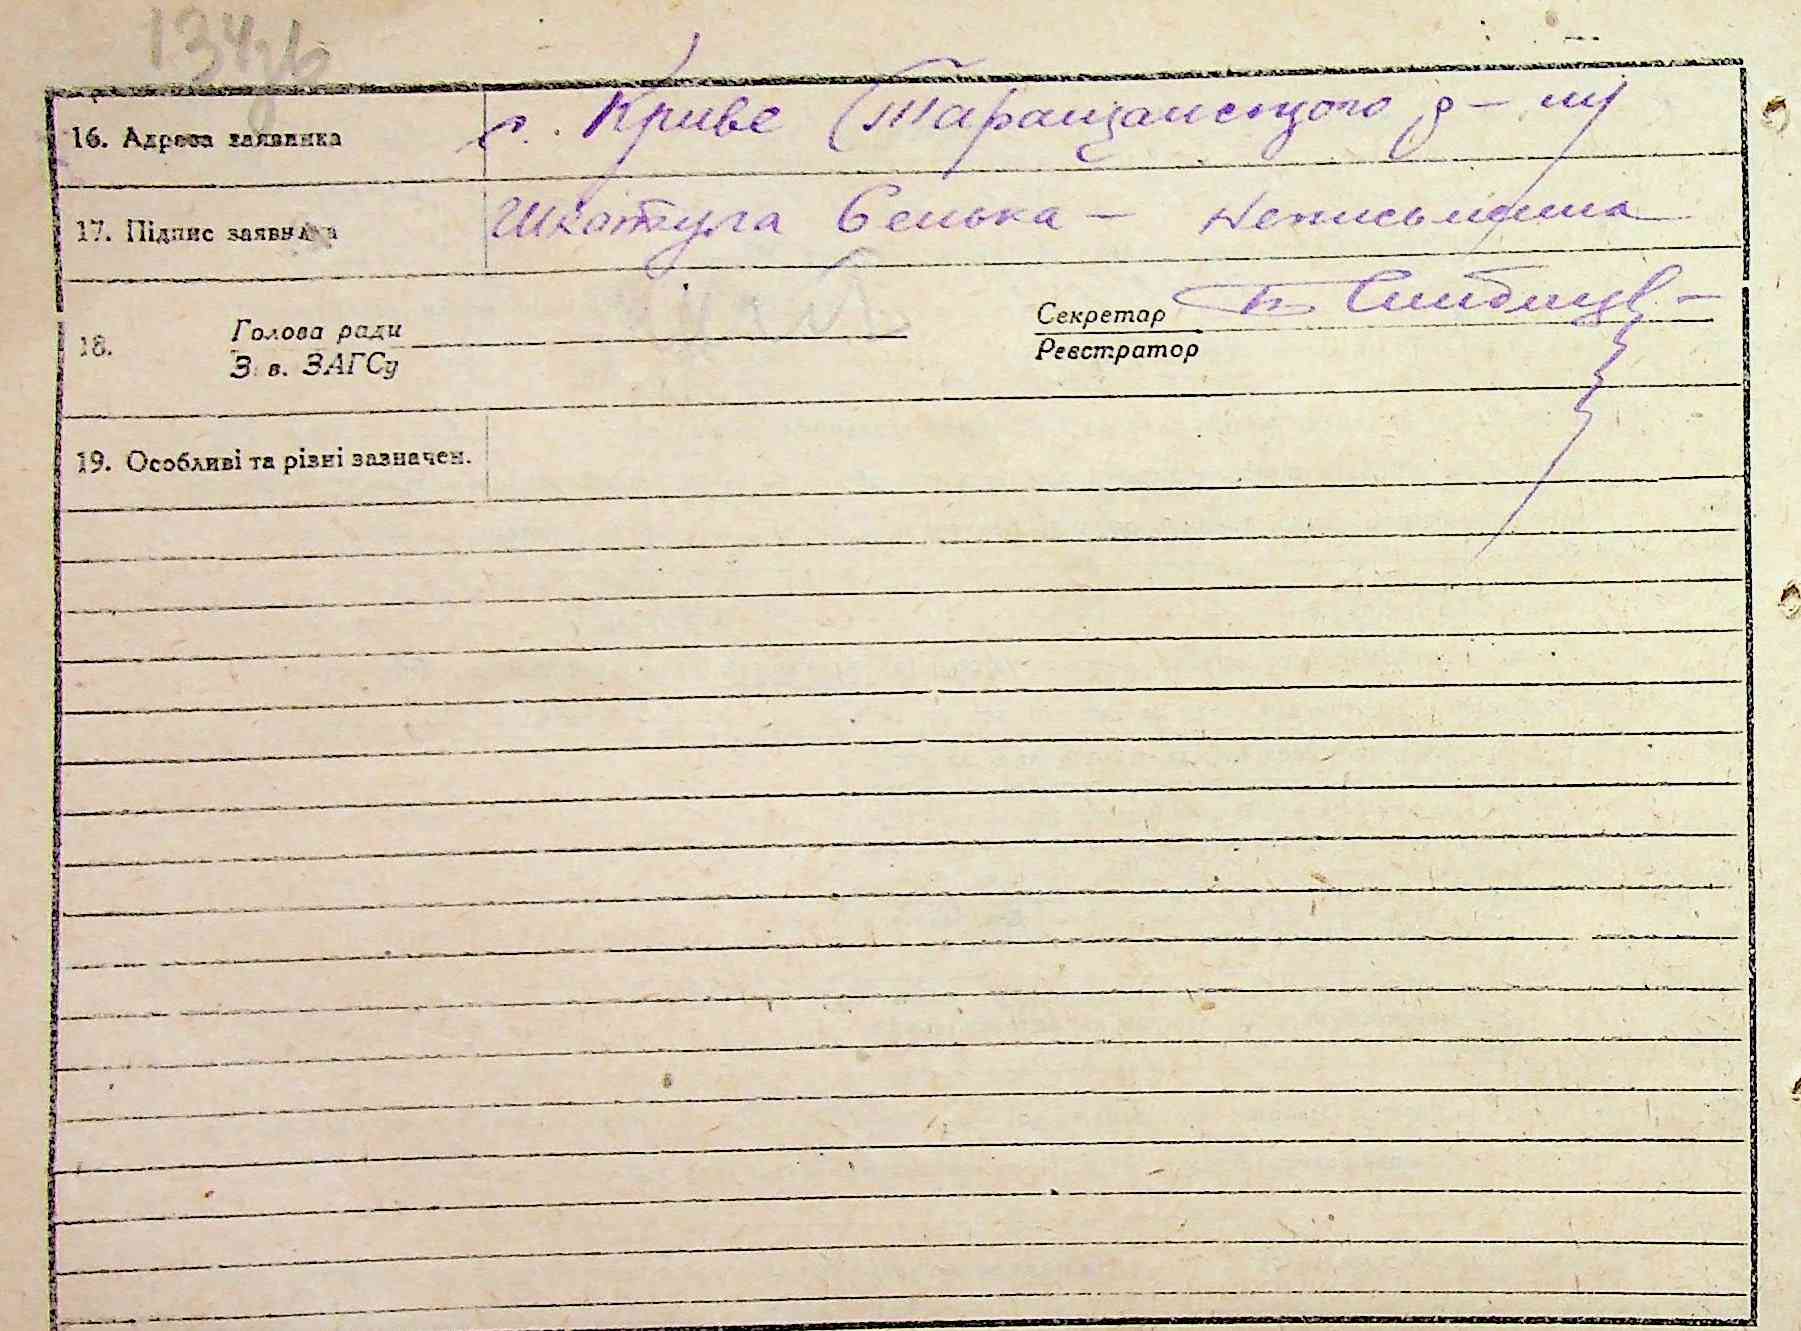 134зв
16. Адреса заявника с. Криве Таращанського р-ну
17. Підпис заявника Шкатула Сенька - Неписьменна
18. Голова ради Секретар
З в. ЗАГСу Реєстратор
19. Особливі та різні зазначен.